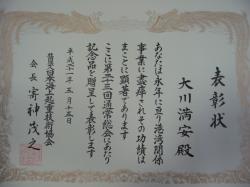 表彰状
大川満安殿
あなたは永年に亘り港湾関係
事業に盡瘁されその功績は
まことに顕著であります
ここに第二十三回通常総会にあたり
記念品を贈呈して表彰します
平成十一年五月十五日
社団法人日本海上起重技術協会
会長 寄神茂之